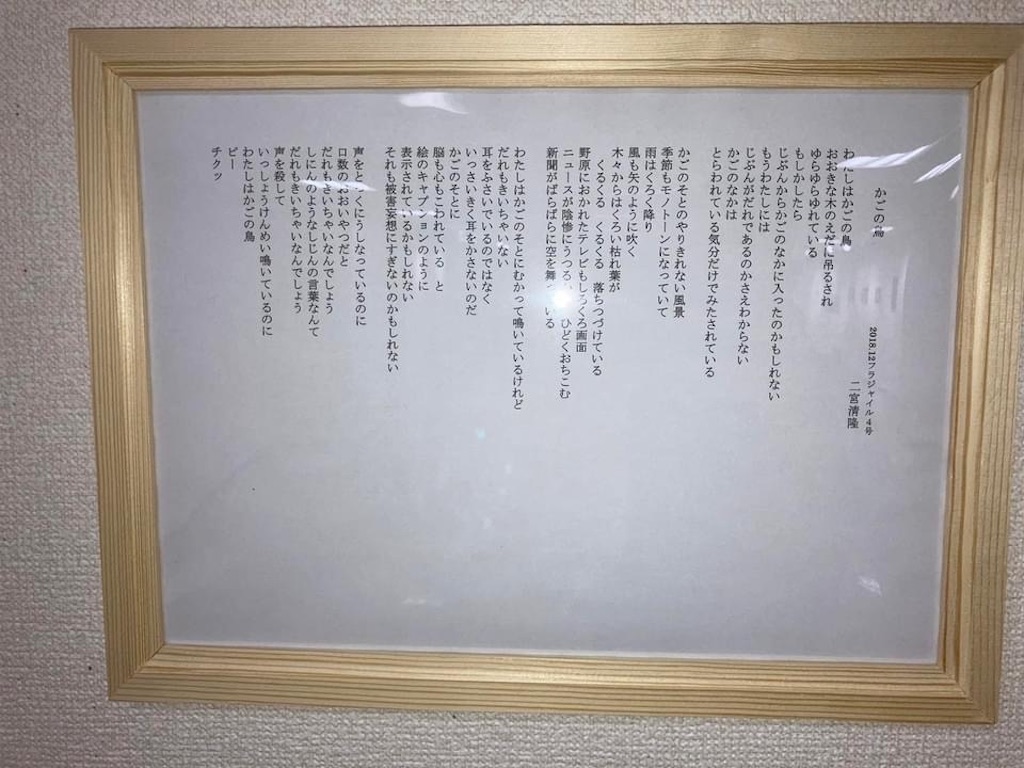 かごの鳥
2018.12フラジャイル4号
二宮清隆
わたしはかごの鳥
おおきな木のえだに吊るされ
ゆらゆらゆれている
もしかしたら
じぶんからかごのなかに入ったのかもしれない
もうわたしには
じぶんがだれであるのかさえわからない
かごのなかは
とらわれている気分だけでみたされている
かごのそとのやりきれない風景
季節もモノトーンになっていて
雨はくろく降り
風も矢のように吹く
木々からはくろい枯れ葉が
くるくる くるくる 落ちつづけている
野原におかれたテレビもしろくろ画面
ニュースが陰惨にうつる ひどくおちこむ
新聞がばらばらに空を舞 いる
わたしはかごのそとにむかって鳴いているけれど
だれもきいちゃいない
耳をふさいでいるのではなく
いっさいきく耳をかさないのだ
かごのそとに
脳も心もこわれている と
絵のキャプションのように
表示されているかもしれない
それも被害妄想にすぎないのかもしれない
声をとっくにうしなっているのに
口数のおおいやつだと
だれもきいちゃいないんでしょう
しにんのようなしじんの言葉なんて
だれもきいちゃいないんでしょう
声を殺して
いっしょうけんめい鳴いているのに
わたしはかごの鳥
ピー
チクッ